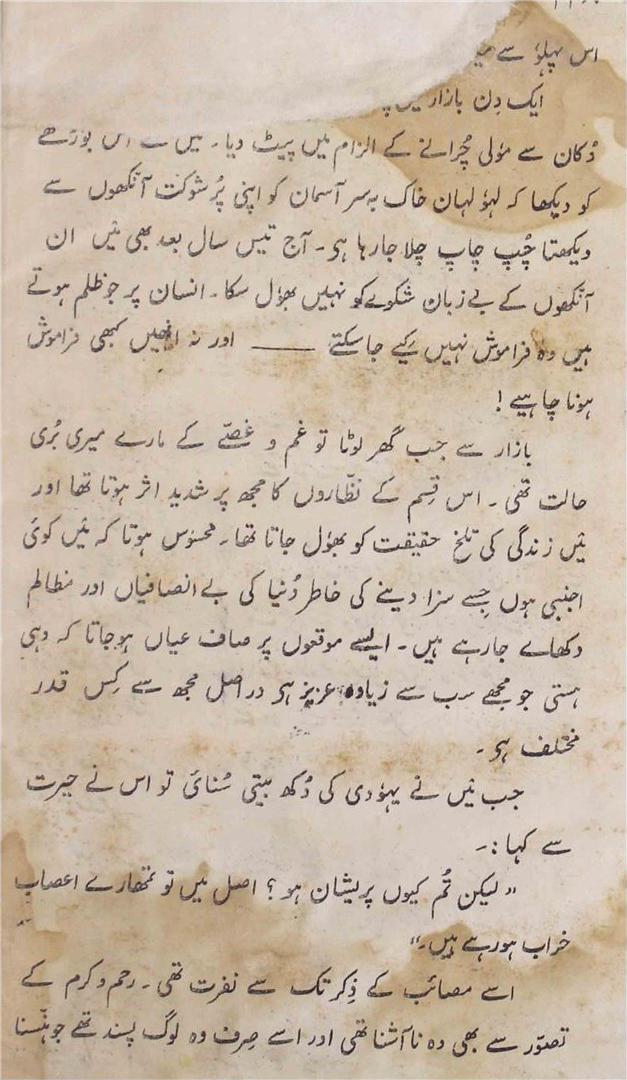 اس پہلوٗ سے
ایک دِن بازار میں
دُکان سے موٗلی چُرانے کے الزام میں پیٹ دیا۔ میں نے اس بوڑھے
کو دیکھا کہ لہوٗلہان خاک بہ سر آسمان کو اپنی پُر شوکت آنکھوں سے
دیکھتا چُپ چاپ چلا جا رہا ہی۔ آج تیس سال بعد بھی مَیں ان
آنکھوں کے بے زبان شکوے کو نہیں بھوٗل سکا۔ انسان پر جو ظلم ہوتے
ہیں وہ فراموش نہیں کیے جا سکتے ——— اور نہ انھیں کبھی فراموش
ہونا چاہیے!
بازار سے جب گھر لوٹا تو غم و غصّے کے مارے میری بُری
حالت تھی۔ اس قسِم کے نظّاروں کا مجھ پر شدید اثر ہوتا تھا اور
مَیں زندگی کی تلخ حقیقت کو بھوٗل جاتا تھا۔ محسوٗس ہوتا کہ مَیں کوئی
اجنبی ہوں جِسے سزا دینے کی خاطر دُنیا کی بے انصافیاں اور مظالم
دکھائے جارہے ہیں۔ ایسے موقعوں پر صاف عیاں ہو جاتا کہ وہی
ہستی جو مجھے سب سے زیادہ عزیز ہی دراصل مجھ سے کِس قدر
مختلف ہی۔
جب مَیں نے یہوٗدی کی دُکھ بیتی سُنائی تو اس نے حیرت
سے کہا:۔
”لیکن تُم کیوں پریشان ہو؟ اصل میں تو تمھارے اعصاب
خراب ہورہے ہیں۔“
اسے مصائب کے ذِکر تک سے نفرت تھی۔ رحم و کرم کے
تصوّر سے بھی وہ نا آشنا تھی اور اسے صِرف وہ لوگ پسند تھے جو ہنسنا